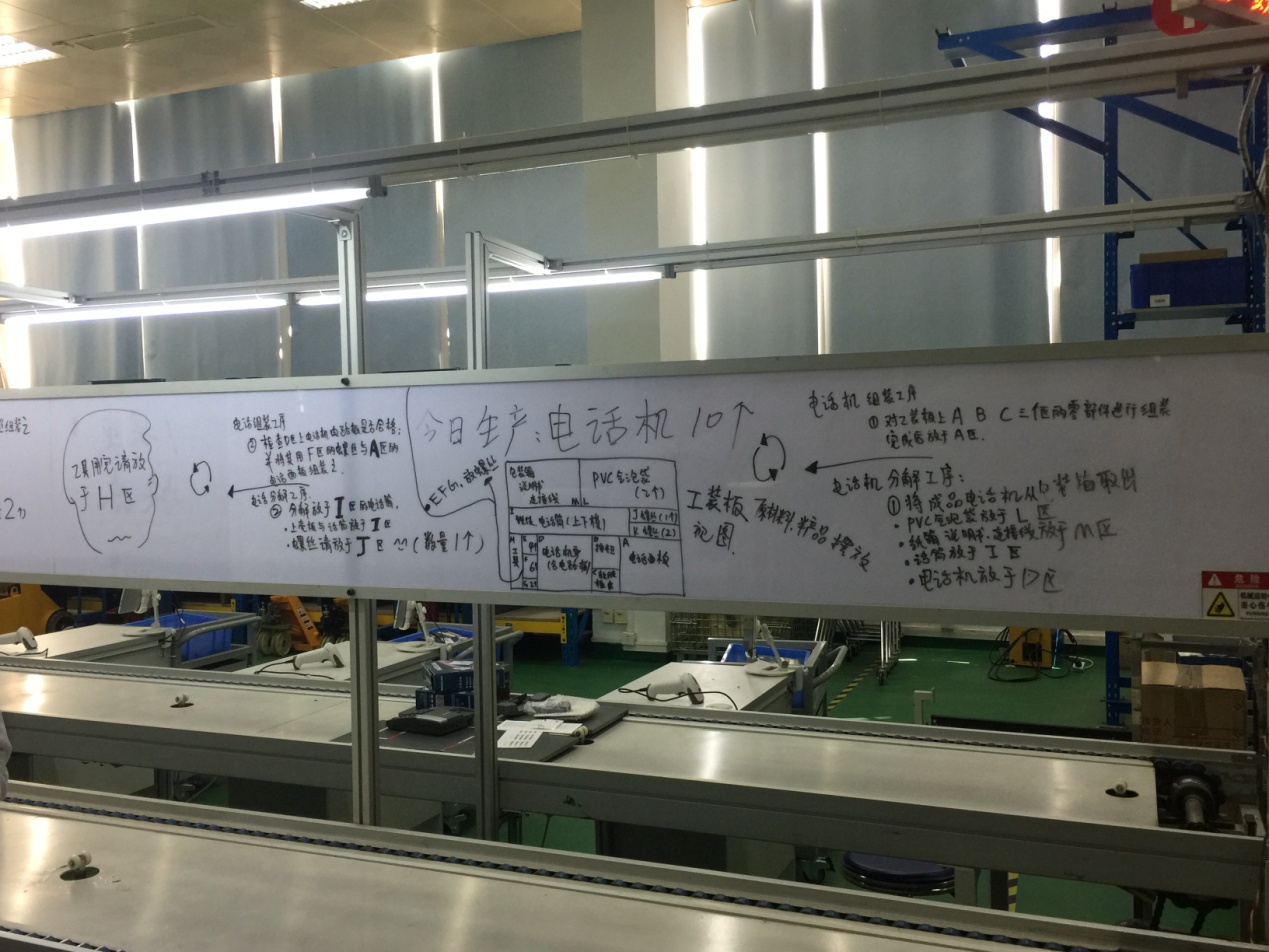 工具用完请放
于H区
电话组装工序
并将使用F区的螺丝与A区的
电话面板组装之
电话分解工序
② 分解放于I区的电话筒,
·上壳板与话筒放于I区
·螺丝请放于J区 (数量1个)
今日生产:电话机 10个
EFG,放螺丝
包装箱
说明书
连接线 M L
PVC气泡袋
(2个)
电话筒(上下槽)
J 螺丝(1个)
K 螺丝(2)
H
工具
D
电话机身
A
电话面板
工装板 原材料,半成品摆放
视图.
电话机 组装工序
① 对工装板上 A B C 三個區的零部件进行组装
完成后放于A区.
电话机分解工序:
① 将成品电话机从包装箱取出
·PVC气泡袋放于L区
·纸箱 说明书,连接线放于M区
·话筒放于I区
·电话机放于D区
危险